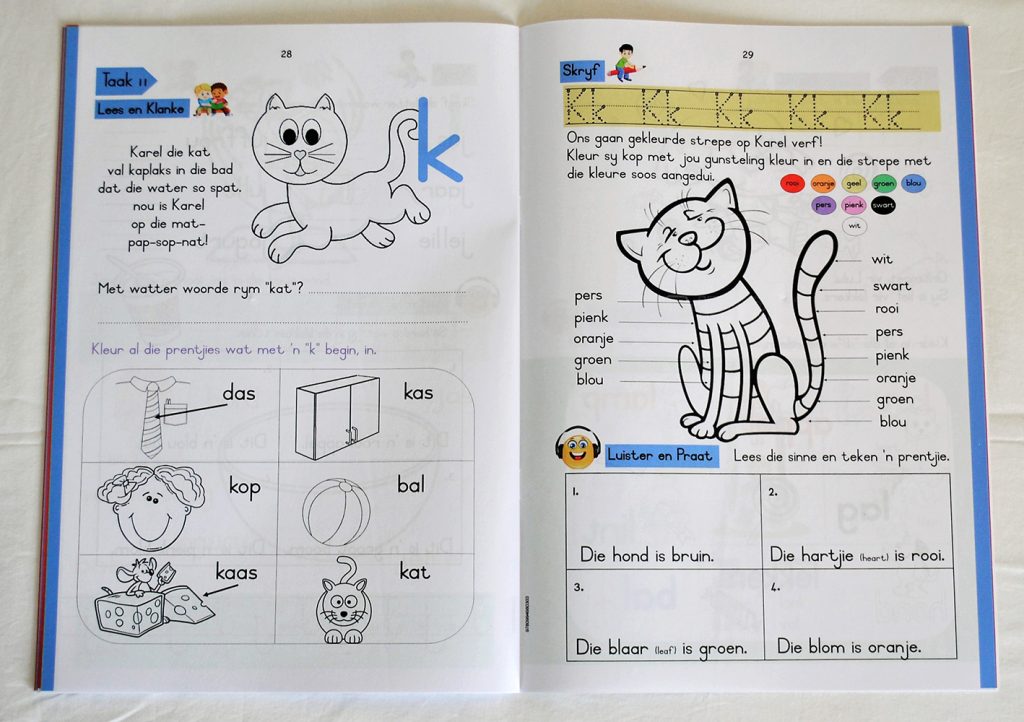 28
Taak 11
Lees en Klanke
k
Karel die kat
val kaplaks in die bad
dat die water so spat.
nou is Karel
op die mat-
pap-sop-nat!
Met watter woorde rym "kat"?
Kleur al die prentjies wat met 'n "k" begin, in.
das
kas
kop
bal
kaas
kat
29
Skryf
Kk Kk Kk Kk Kk
Ons gaan gekleurde strepe op Karel verf!
Kleur sy kop met jou gunsteling kleur in en die strepe met
die kleure soos aangedui.
rooi oranje geel groen blou
pers pienk swart
wit
pers
pienk
oranje
groen
blou
wit
swart
rooi
pers
pienk
oranje
groen
blou
Luister en Praat
Lees die sinne en teken 'n prentjie.
1.
Die hond is bruin.
2.
Die hartjie (heart) is rooi.
3.
Die blaar (leaf) is groen.
4.
Die blom is oranje.